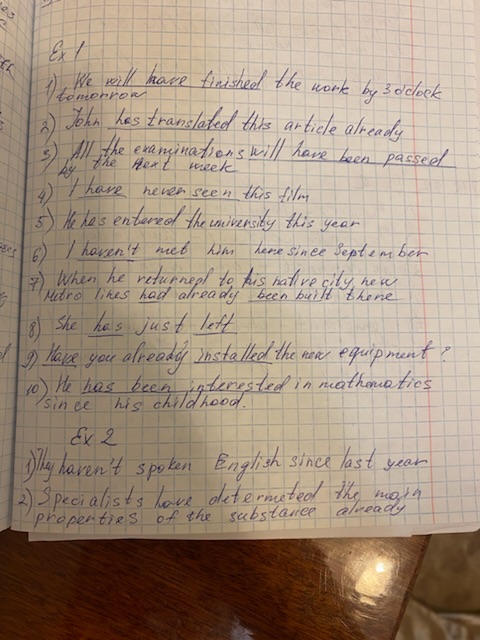 Ex 1
1) We will have finished the work by 3 o'clock
tomorrow
2) John has translated this article already
3) All the examinations will have been passed
by the next week
4) I have never seen this film
5) He has entered the university this year
6) I haven't met him here since September
7) When he returned to his native city, new
metro lines had already been built there
8) She has just left
9) Have you already installed the new equipment?
10) He has been interested in mathematics
since his childhood.
Ex 2
1) They haven't spoken English since last year
2) Specialists have determeted the main
properties of the substance already